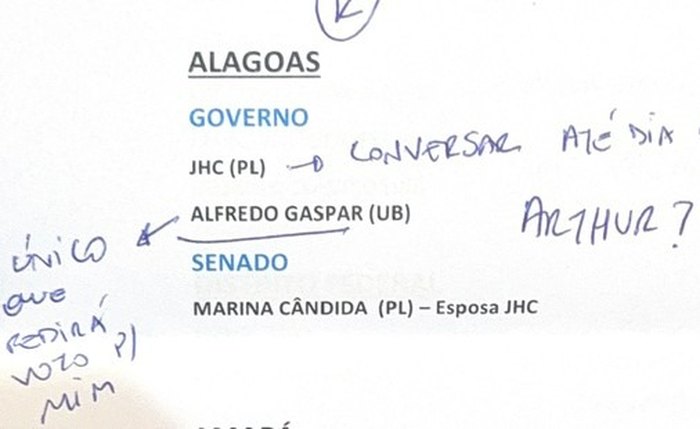 K
ALAGOAS
GOVERNO
JHC (PL) → CONVERSAR ATÉ DIA
ALFREDO GASPAR (UB)
ARTHUR?
ÚNICO
QUE
PEDIRÁ
VOTO P/
MIM
SENADO
MARINA CÂNDIDA (PL) – Esposa JHC